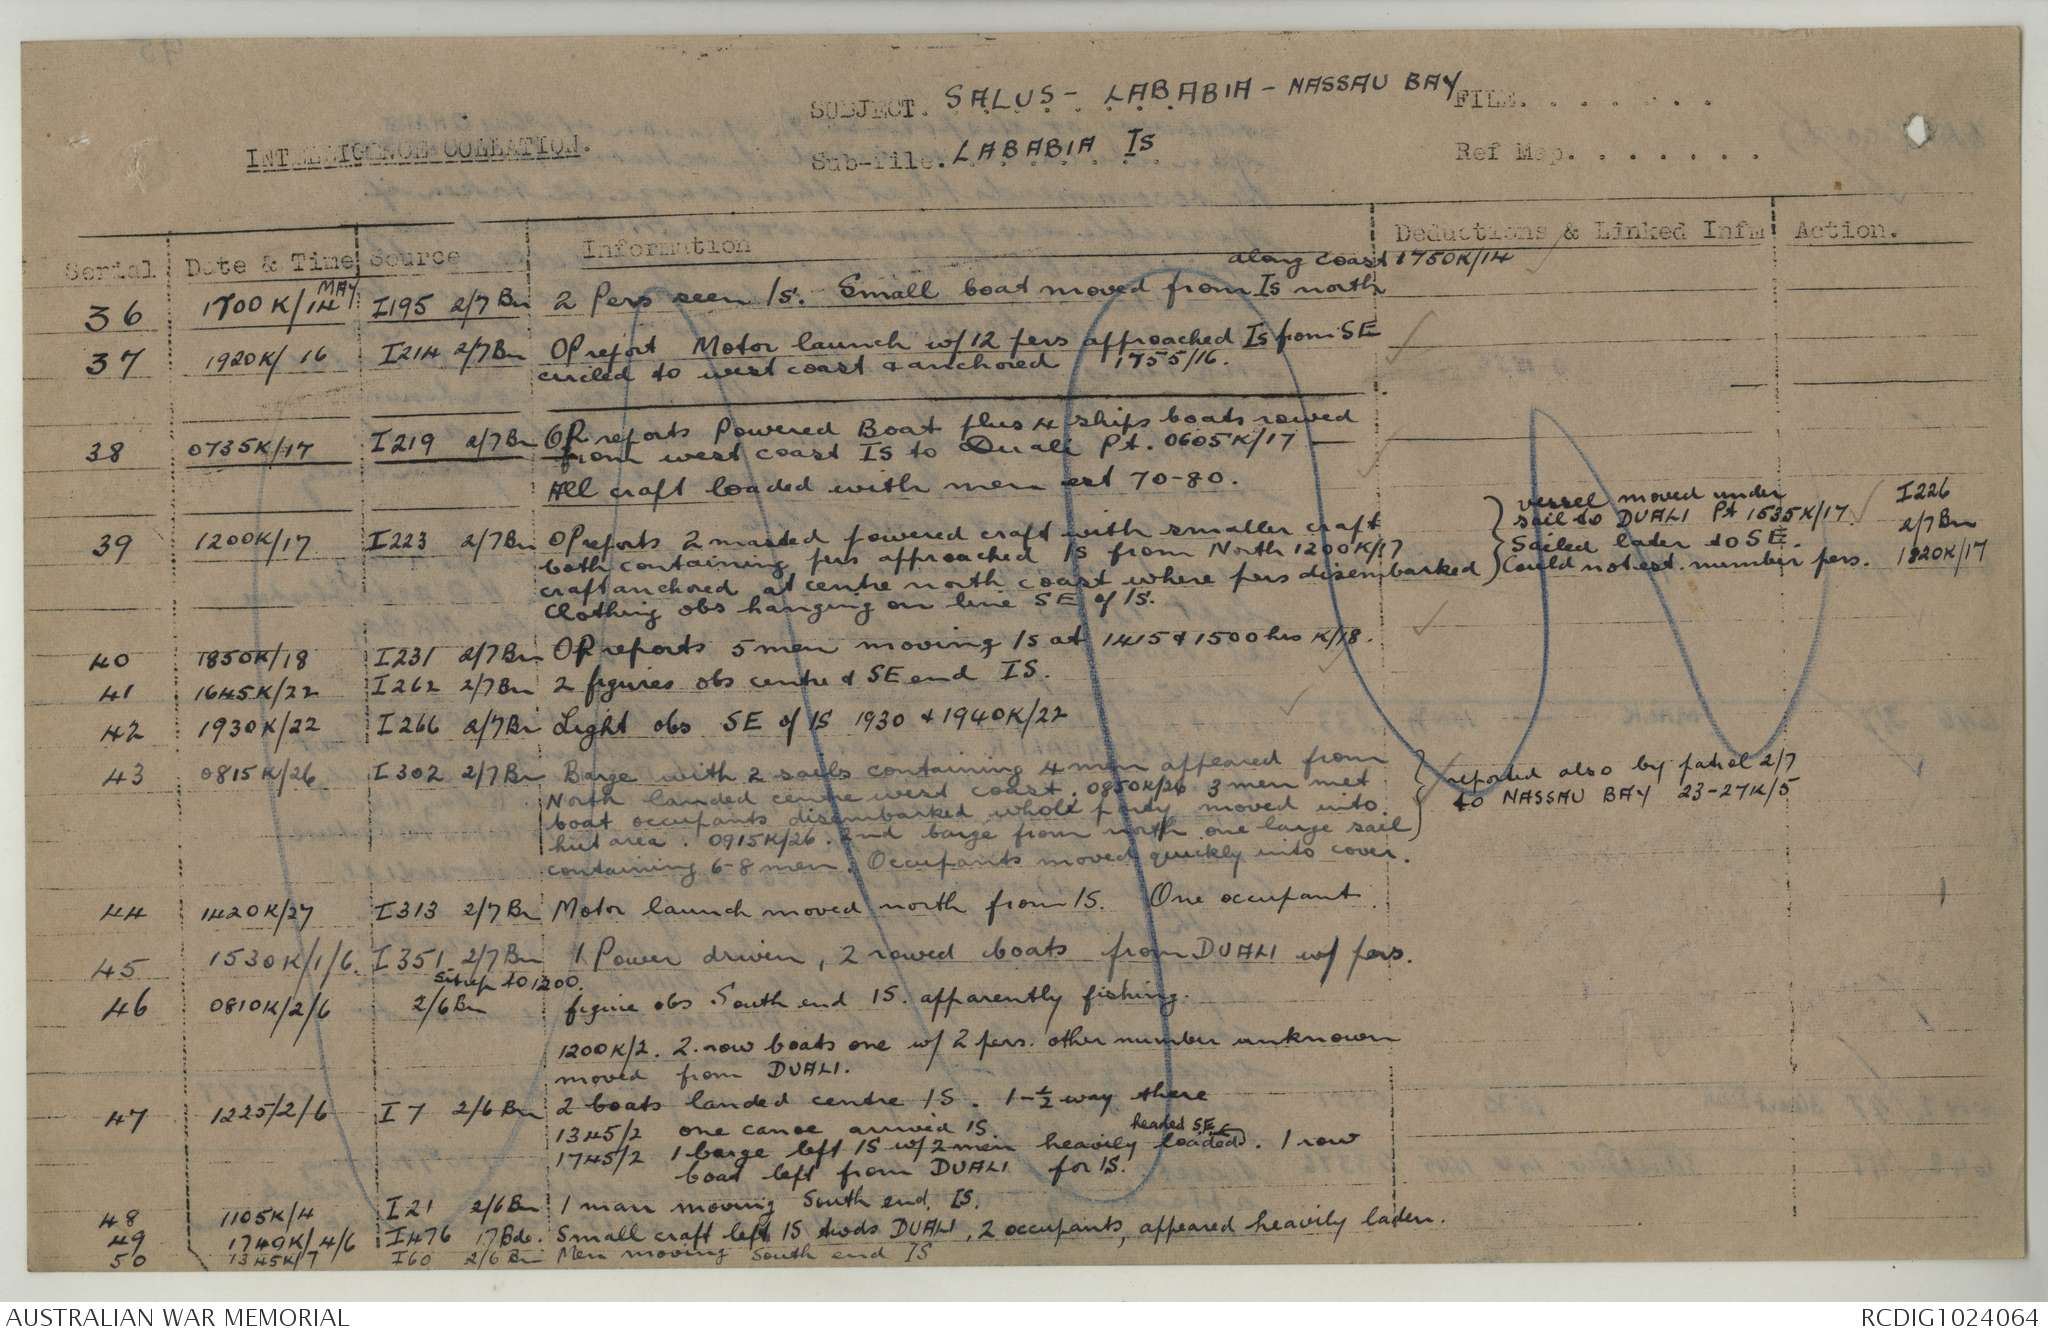 SUBJECT. SALUS - LABABIA - NASSAU BAY FILE. . . . . . .
INTELLIGENCE COLLATION.
Sub-file. LABABIA Is Ref Map. . . . . . .
Serial Date & Time Source Information Deductions & Linked Infm Action.
along coast 1750K/14
36 1700K/14 MAY I195 2/7 Bn 2 Pers seen Is. Small boat moved from Is north
37 1920K/16 I214 2/7 Bn OP report Motor launch w/ 12 pers approached Is from SE
circled to west coast & anchored 1755/16.
38 0735K/17 I219 2/7 Bn OP reports Powered Boat plus 4 ships boats rowed
from west coast Is to Duali Pt. 0605K/17 —
All craft loaded with men est 70-80.
39 1200K/17 I223 2/7 Bn OP reports 2 masted powered craft with smaller craft
both containing pers approached Is from North 1200K/17
craft anchored at centre north coast where pers disembarked
Clothing obs hanging on line SE of IS.
vessel moved under
sail to DUALI Pt 1535K/17.
Sailed later to SE.
Could not est. number pers.
I226
2/7 Bn
1820K/17
40 1850K/18 I231 2/7 Bn OP reports 5 men moving Is at 1415 & 1500 hrs K/18.
41 1645K/22 I262 2/7 Bn 2 figures obs centre & SE end IS.
42 1930K/22 I266 2/7 Bn Light obs SE of IS 1930 & 1940K/22
43 0815K/26 I302 2/7 Bn Barge with 2 sails containing 4 men appeared from
North landed centre west coast. 0850K/26 3 men met
boat occupants disembarked whole party moved into
hut area. 0915K/26. 2nd barge from north one large sail
containing 6-8 men. Occupants moved quickly into cover.
reported also by patrol 2/7
to NASSAU BAY 23-27K/5
44 1420K/27 I313 2/7 Bn Motor launch moved north from IS. One occupant.
45 1530K/1/6. I351 2/7 Bn 1 Power driven, 2 rowed boats from DUALI w/ pers.
Sitrep to 1200.
46 0810K/2/6 2/6 Bn figure obs South end IS. apparently fishing.
1200K/2. 2 row boats one w/ 2 pers. other number unknown
moved from DUALI.
47 1225/2/6 I7 2/6 Bn 2 boats landed centre IS. 1-½ way there
1345/2 one canoe arrived IS.
headed SE
1745/2 1 barge left IS w/ 2 men heavily loaded. 1 row
boat left from DUALI for IS.
48 1105K/4 I21 2/6 Bn 1 man moving South end IS.
49 1740K/4/6 I476 17 Bde. Small craft left IS twds DUALI, 2 occupants, appeared heavily laden.
50 1345K/7 I60 2/6 Bn Men moving South end IS
AUSTRALIAN WAR MEMORIAL RCDIG1024064